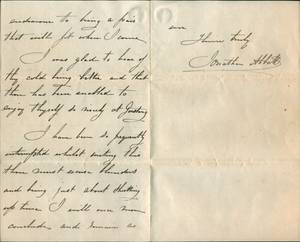 endeavour to bring a pair
that will fit when I come
I was glad to hear of
thy cold being better and that
thou has been enabled to
enjoy thyself so nicely at
I have been so frequently
interrupted whilst writing this
thou must excuse blunders
and being just about shutting
up time I will once more
conclude and remain as
ever
Thine truly
Jonathan Abbatt